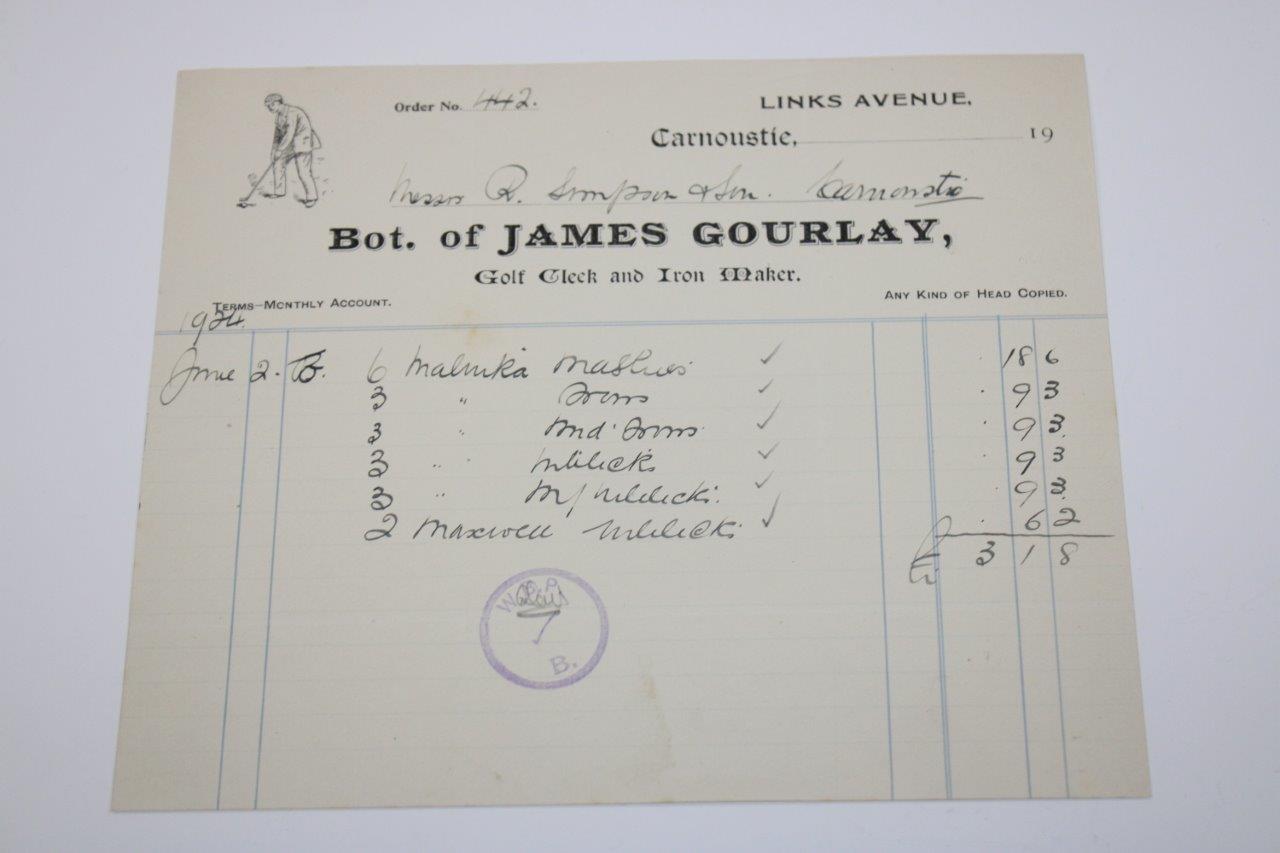 Order No. 442.
LINKS AVENUE,
Carnoustie, 19
Messrs R. Simpson & Son. Carnoustie
Bot. of JAMES GOURLAY,
Golf Cleek and Iron Maker.
TERMS—MONTHLY ACCOUNT. ANY KIND OF HEAD COPIED.
1924.
June 2. B. 6 Mashies ✓ 18 6
3 " Irons ✓ 9 3
3 " Mid Irons ✓ 9 3.
3 " Niblicks ✓ 9 3
3 " M/Niblicks. ✓ 9 3.
2 Maxwell Niblicks ✓ 6 2
3 1 8
W P
7
B.